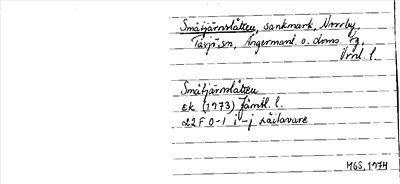 Småtjärnslåtten, sankmark, Norrby,
Tåsjö sn, Ångermanl. o. doms.
Vrnl. l.
Småtjärnslåtten
ek (1973) Jämtl. l.
22 F 0-1 i-j Råtavare
MGS, 1974